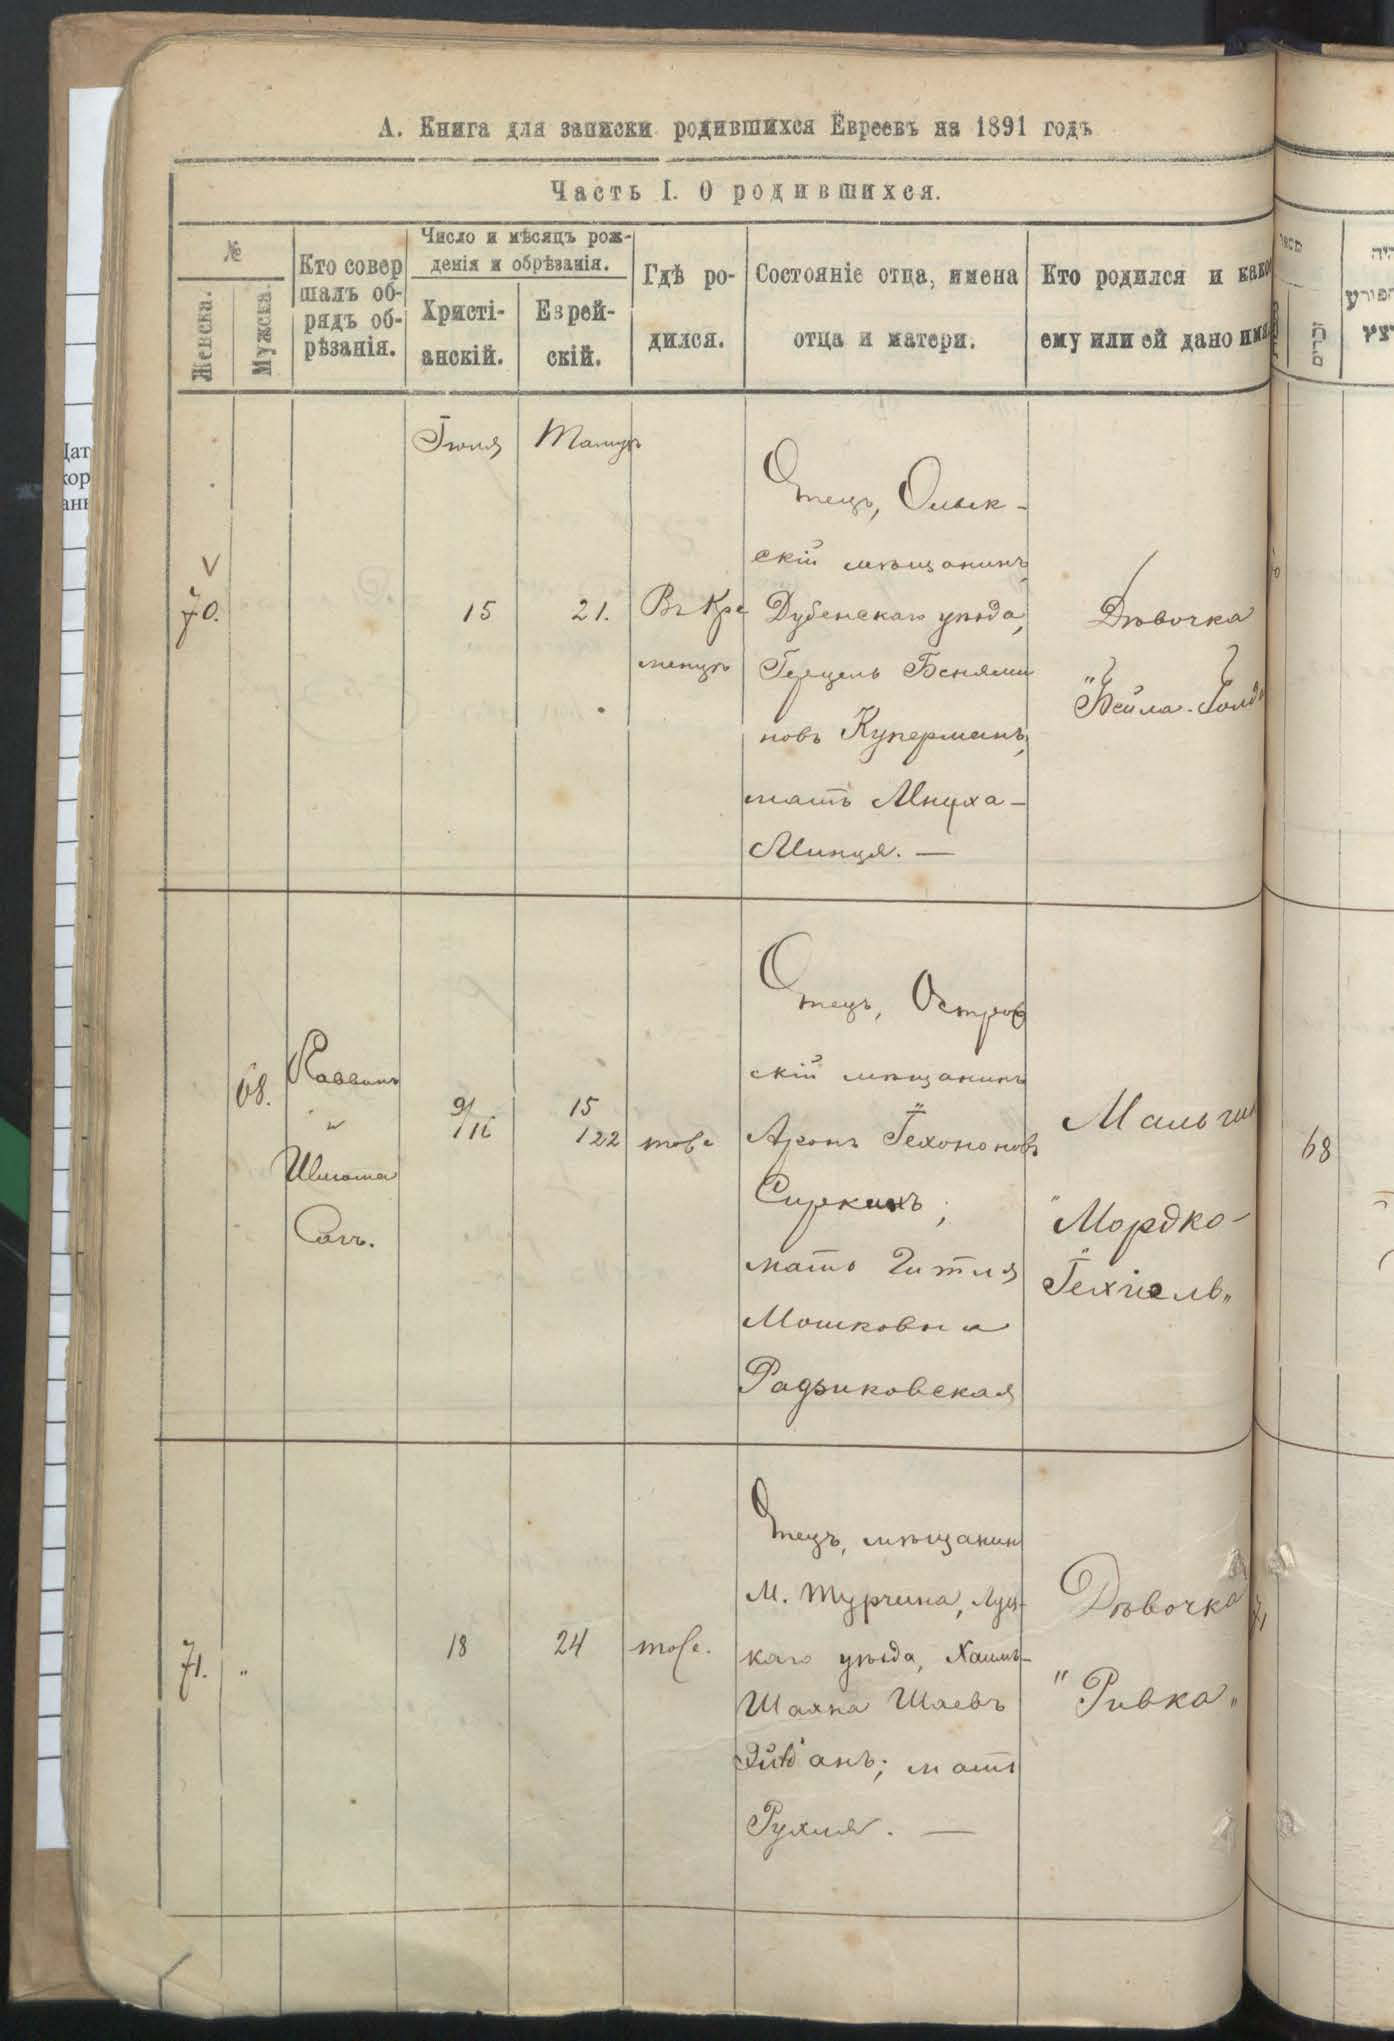 А. Книга для записки родившихся Евреевъ на 1891 годъ
Часть I. О родившихся.
№
Женска.
Мужска.
Кто совер
шалъ об-
рядъ об-
рѣзанія.
Число и мѣсяцъ рож-
денія и обрѣзанія.
Христі-
анскій.
Еврей-
скій.
Гдѣ ро-
дился.
Состояніе отца, имена
отца и матери.
Кто родился и како
ему или ей дано имя
Іюля
Тамузъ
70.
15
21.
Въ Кре
менцѣ
Отецъ, Олык-
скій мѣщанинъ
Дубенскаго уѣзда,
Герцель Бенями
новъ Куперманъ,
мать Мнуха-
Минця. —
Дѣвочка
"Бейла-Голда
68.
Раввинъ
"
Шлиома
Сатъ.
9/16
15/22
тоже
Отецъ, Остров
скій мѣщанинъ
Аронъ Іехононовъ
Сиркинъ,
мать Гитля
Мошковна
Радзиковская
Мальчик
"Мордко-
Іехіель"
71.
"
18
24
тоже.
Отецъ, мѣщанин
М. Турчина, Луц-
каго уѣзда, Хаимъ-
Шаяна Шаевъ
мать
Рухля. —
Дѣвочка
"Ривка"
68
71
זכרים